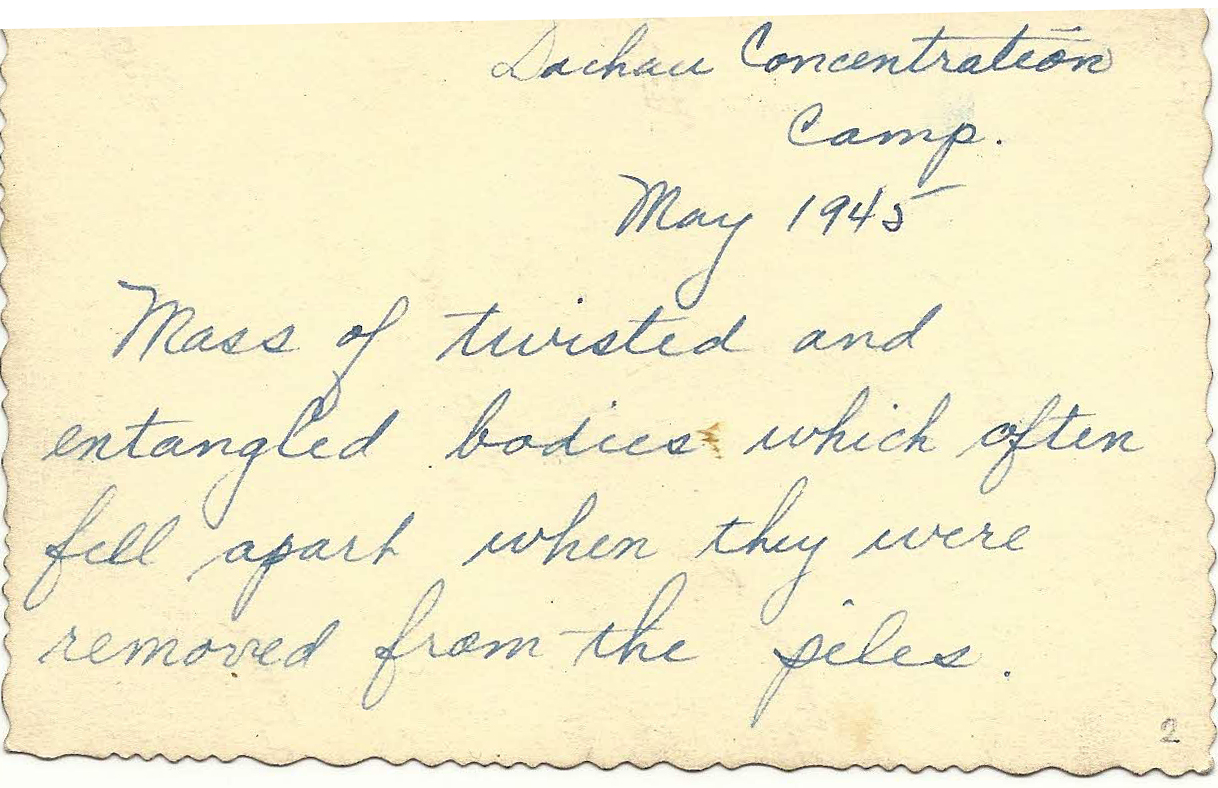 Dachau Concentration
Camp.
May 1945
Mass of twisted and
entangled bodies which often
fell apart when they were
removed from the piles.
2